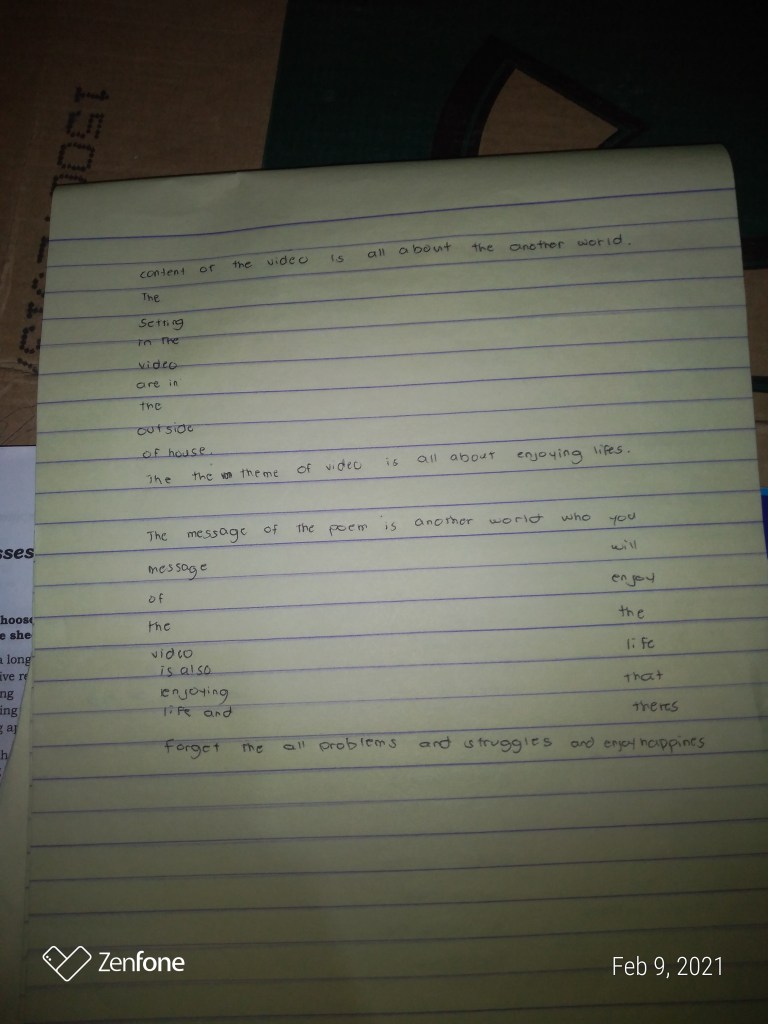 1500
content of the video is all about the another world.
The
Setting
in the
video
are in
the
outside
of house.
The the theme of video is all about enjoying lifes.
The message of the poem is another world who you
will
enjoy
the
life
that
theres
message
of
the
video
is also
enjoying
life and
Forget the all problems and struggles and enjoy happines
sses
hoose
e she
a long
ive re
ng
ing
g ap
h
Zenfone
Feb 9, 2021